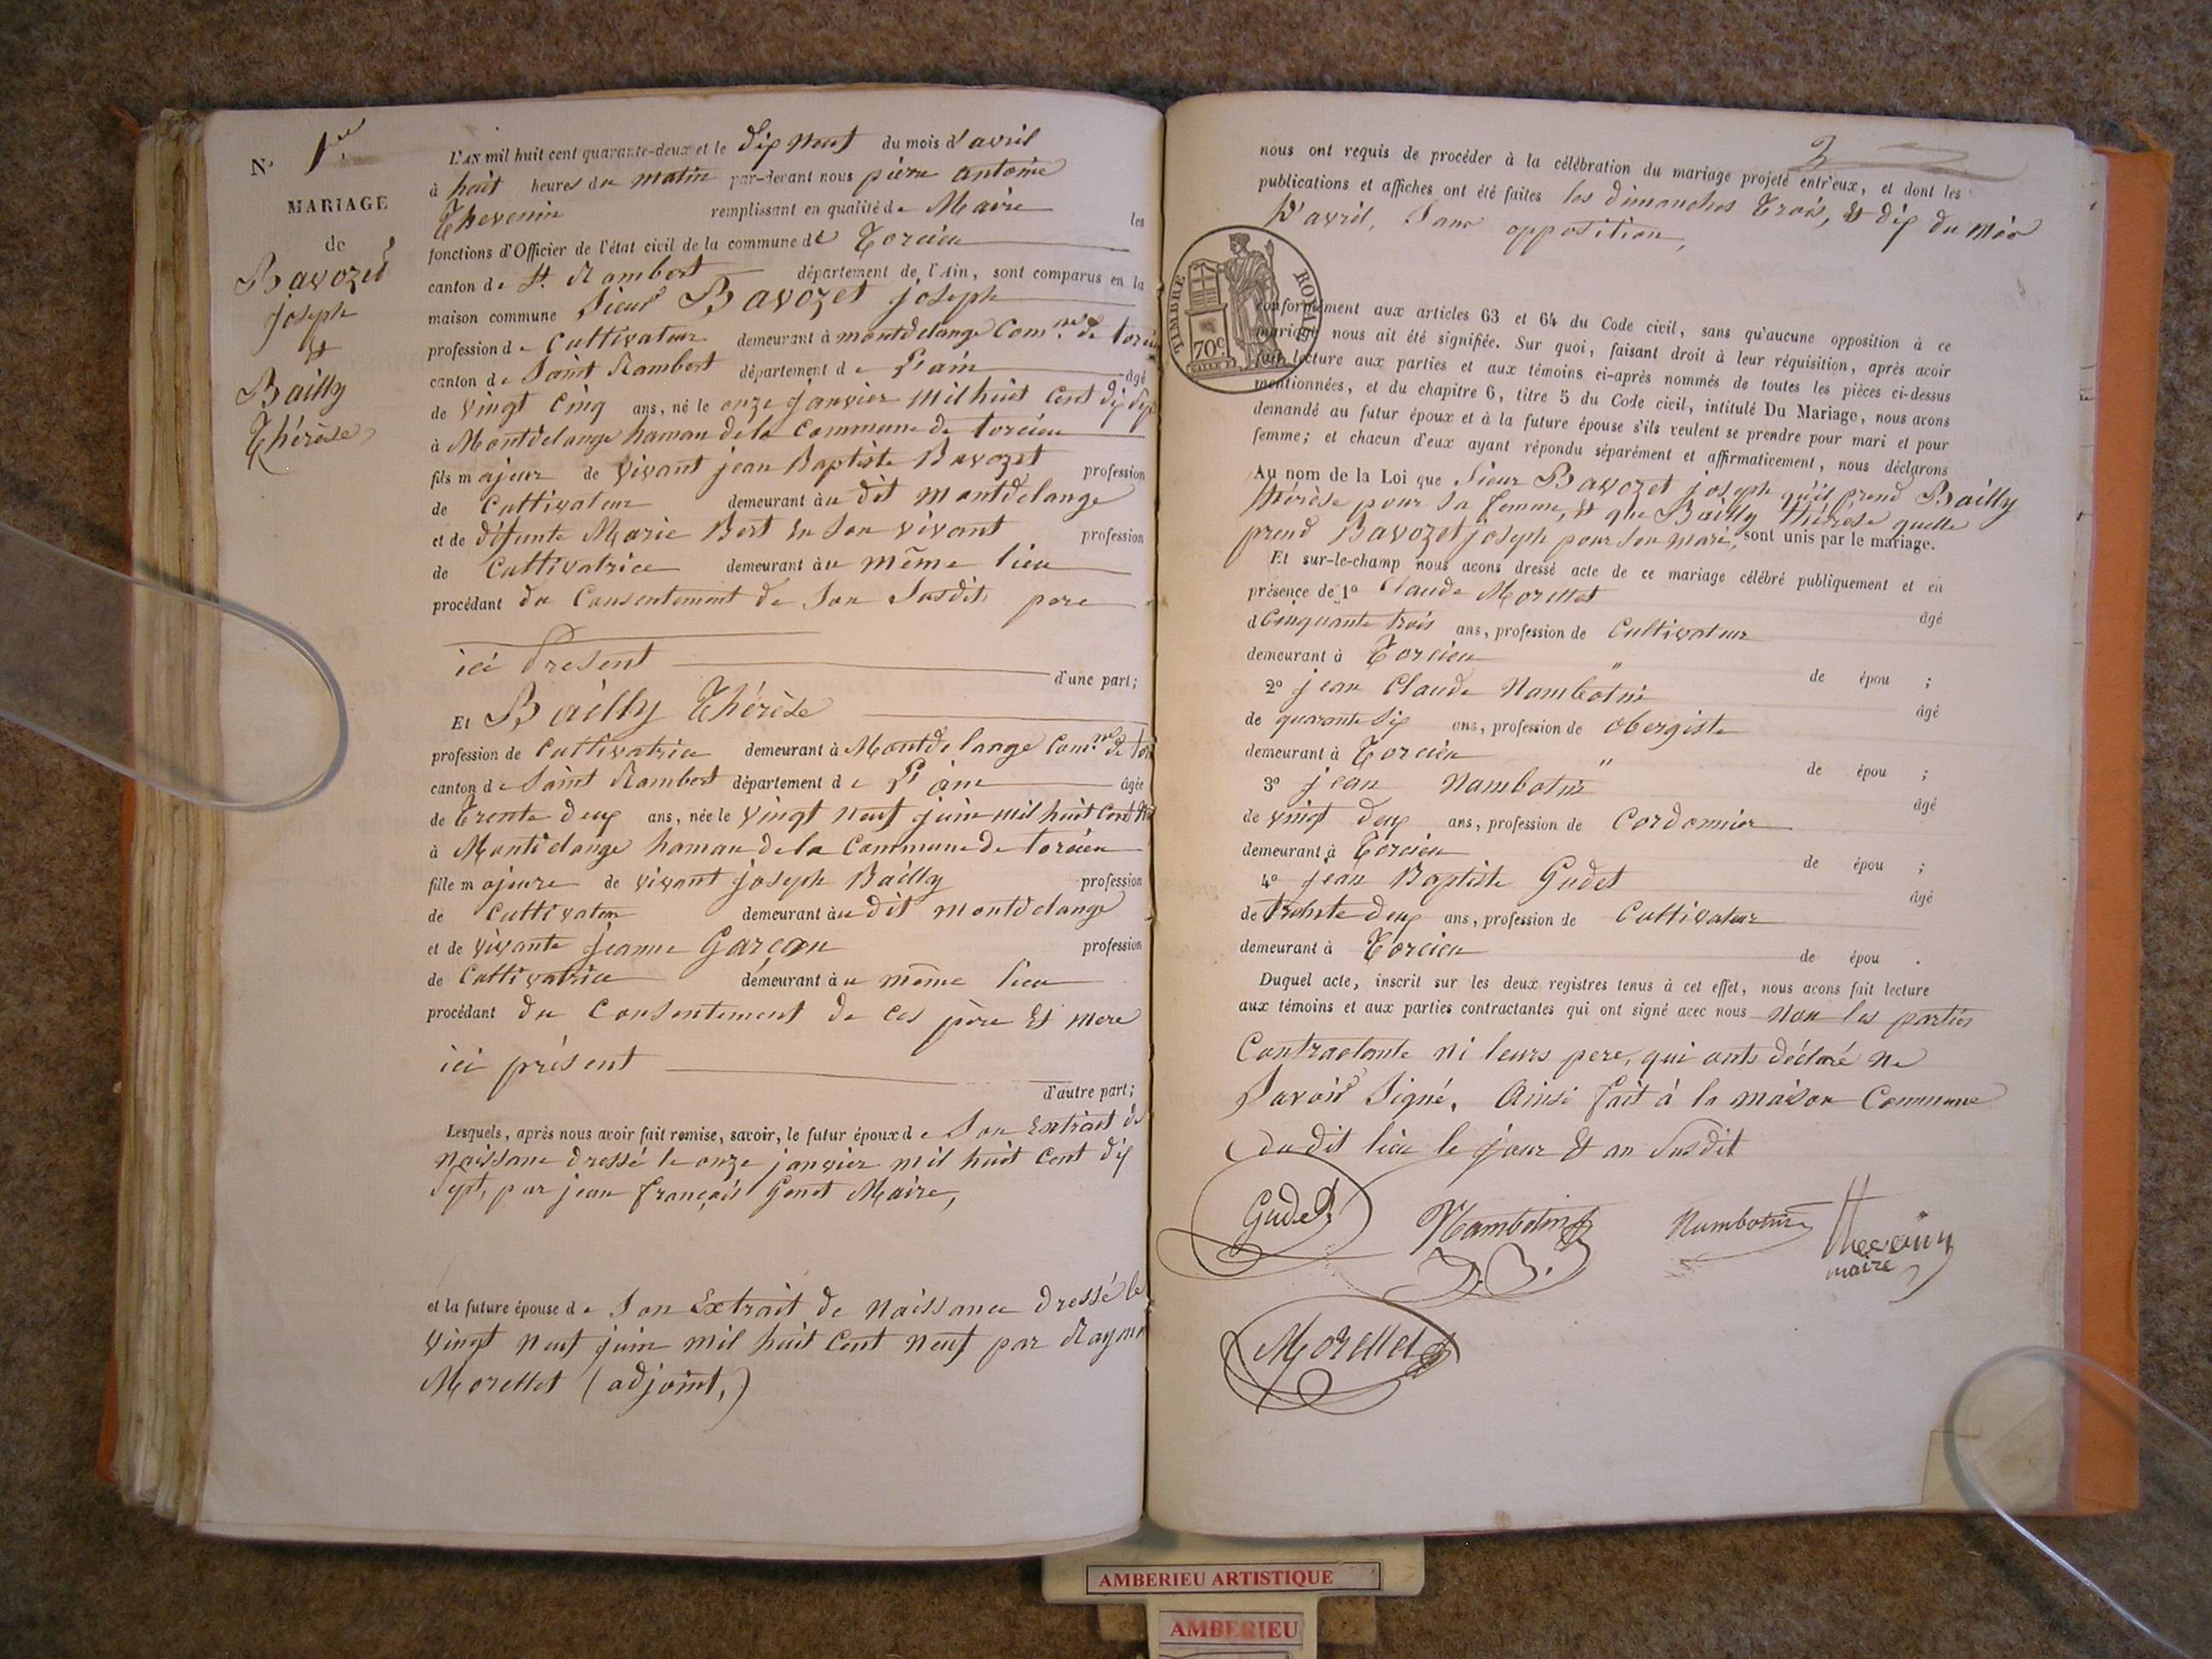 N° 1er
MARIAGE
de
Bavozet
joseph
et
Bailly
Thérèse
L'AN mil huit cent quarante-deux et le dix neuf du mois d'avril
à huit heures du matin par-devant nous pierre antoine
Thevenin remplissant en qualité de Maire les
fonctions d'Officier de l'état civil de la commune de Torcieu
canton de St. Rambert département de l'Ain, sont comparus en la
maison commune Sieur Bavozet joseph
profession de Cultivateur demeurant à montdelange Com.ne de torcieu
canton de Saint Rambert département de L'ain âgé
de vingt Cinq ans, né le onze janvier mil huit Cent dix sept
à Montdelange hamau de la Commune de torcieu
fils majeur de vivant jean Baptiste Bavozet profession
de Cultivateur demeurant au dit montdelange
et de défunte Marie Bert En Son vivant profession
de Cultivatrice demeurant au même lieu
procédant du Consentement de Son Susdit pere
ici Present d'une part;
Et Bailly Thérèse
profession de Cultivatrice demeurant à Montdelange Com.ne de tor
canton de Saint Rambert département de L'ain âgée
de Trente deux ans, née le vingt neuf juin mil huit Cent
à Montdelange hamau de la Commune de torcieu
fille majeure de vivant joseph Bailly profession
de Cultivateur demeurant au dit montdelange
et de vivante jeanne Garcon profession
de Cultivatrice demeurant au même lieu
procédant du Consentement de ces père Et mere
ici présent
d'autre part;
Lesquels, après nous avoir fait remise, savoir, le futur époux de Son Extrait de
naissance dressé le onze janvier mil huit Cent dix
Sept, par jean françois Genet Maire,
et la future épouse de Son Extrait de Naissance dressé le
vingt neuf juin mil huit Cent neuf par Raymon
Morellet (adjoint,)
2
nous ont requis de procéder à la célébration du mariage projeté entr'eux, et dont les
publications et affiches ont été faites les dimanches Trois, Et dix du mois
D'avril, Sans opposition,
TIMBRE ROYAL
70c
conformément aux articles 63 et 64 du Code civil, sans qu'aucune opposition à ce
mariage nous ait été signifiée. Sur quoi, faisant droit à leur réquisition, après avoir
fait lecture aux parties et aux témoins ci-après nommés de toutes les pièces ci-dessus
mentionnées, et du chapitre 6, titre 5 du Code civil, intitulé Du Mariage, nous avons
demandé au futur époux et à la future épouse s'ils veulent se prendre pour mari et pour
femme; et chacun d'eux ayant répondu séparément et affirmativement, nous déclarons
Au nom de la Loi que Sieur Bavozet joseph qu'il prend Bailly
thérèse pour Sa femme, Et que Bailly thérèse quelle
prend Bavozet joseph pour Son mari, sont unis par le mariage.
Et sur-le-champ nous avons dressé acte de ce mariage célébré publiquement et en
présence de 1° Claude Morellet âgé
d Cinquante trois ans, profession de Cultivateur
demeurant à Torcieu de épou ;
2° jean Claude Nambotin âgé
de quarante Six ans, profession de obergiste
demeurant à Torcieu de épou ;
3° jean Nambotin âgé
de vingt deux ans, profession de Cordonnier
demeurant à Torcieu de épou ;
4° jean Baptiste Gudet âgé
de trente deux ans, profession de Cultivateur
demeurant à Torcieu de épou .
Duquel acte, inscrit sur les deux registres tenus à cet effet, nous avons fait lecture
aux témoins et aux parties contractantes qui ont signé avec nous Non les parties
Contractante ni leurs pere, qui onts déclaré Ne
Savoir Signé. Ainsi fait à la maison Commune
du dit lieu le jour Et an Susdit
Gudet Nambotin Nambotin Thevenin
maire
Morellet
AMBERIEU ARTISTIQUE
AMBERIEU